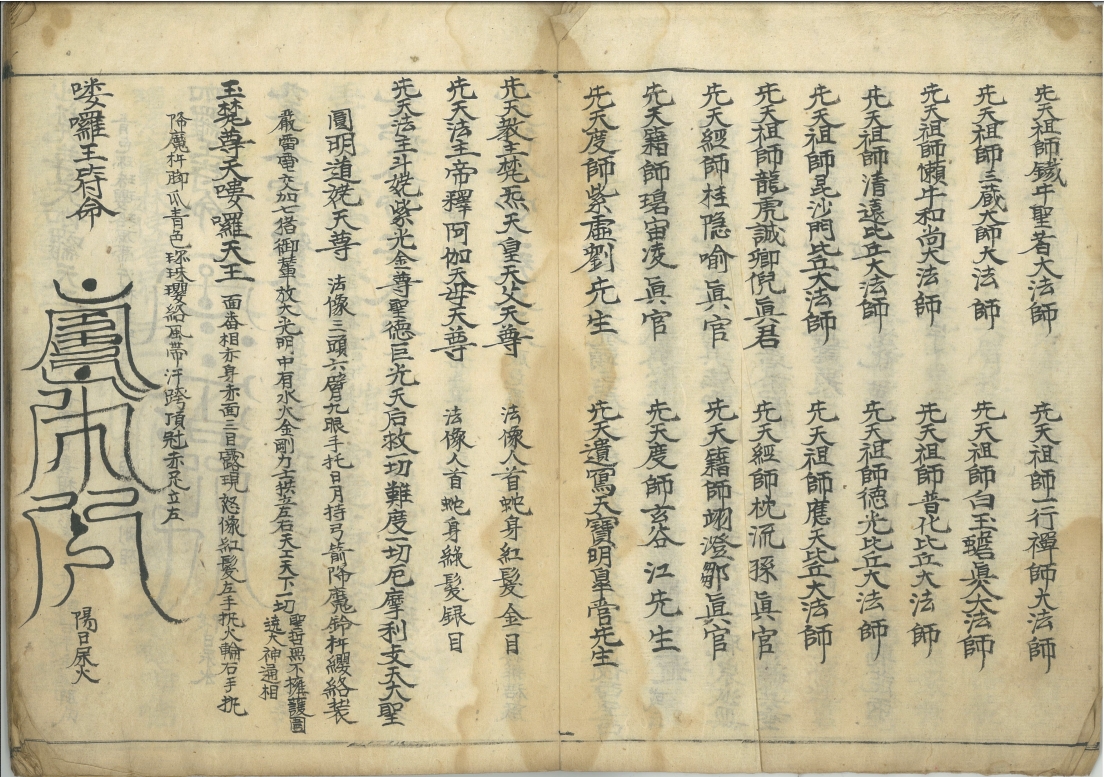 先天祖師鐵牛聖者大法師　先天祖師一行禪師大法師
先天祖師三藏大師大法師　先天祖師白玉蟾眞人大法師
先天祖師懶牛和尚大法師　先天祖師普化比丘大法師
先天祖師清遠比丘大法師　先天祖師德光比丘大法師
先天祖師毘沙門比丘大法師　先天祖師應天比丘大法師
先天祖師龍虎誠卿倪眞君　先天經師枕流孫眞官
先天經師桂隐喻眞官　先天籍師翊澄鄒眞官
先天籍師碧宙凌眞官　先天度師玄谷江先生
先天度師紫虛劉先生　先天遺寫大寶明皐管先生
先天教主梵炁天皇天父天尊　法像人首蛇身紅髮金目
先天法主帝釋阿伽天母天尊　法像人首蛇身綠髮銀目
先天法主斗姥紫光金尊聖德巨光天后救一切難度一切厄摩利支天大聖
圓明道姥天尊　法像三頭六臂九眼手托日月持弓箭降魔鈴杵纓絡装
嚴雷電交加七猪御輦放大光明中有水火金剛力士拱立左右天上天下一切
聖哲罔不擁護圍
遶大神通相
玉梵尊天嘍囉天王　面畨相赤身赤面三目露現怒像紅髮左手执火輪右手执
降魔杵脚爪青色珎珠瓔絡風帶汗胯頂冠赤足立左
嘍囉王符命
陽日尿火